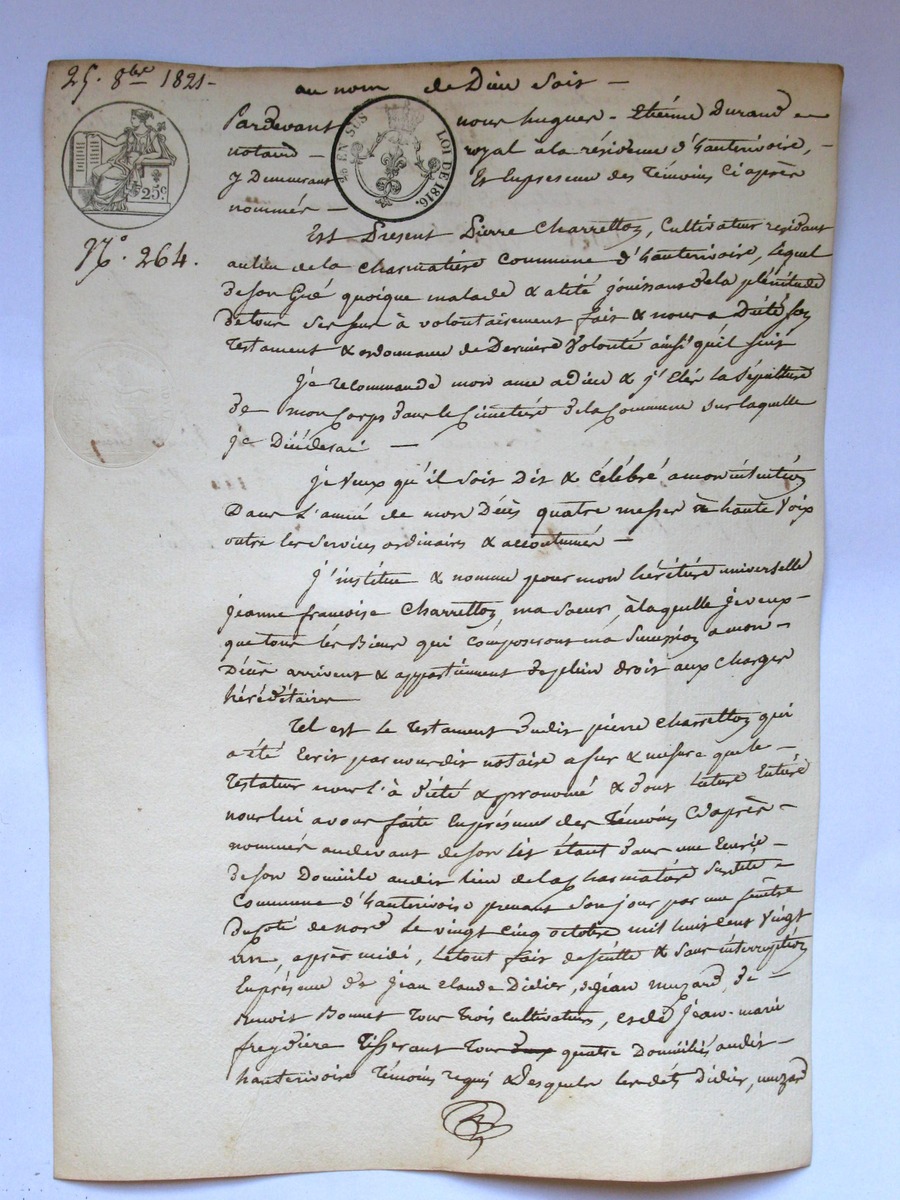 25. 8bre 1821 -
au nom de Dieu soit -
25 c.
EN SUS
LOI DE 1816.
N° 264.
Pardevant nous hugues - thième Durand -
notaire - royal a la résidence d'hauterivoire, -
y Demeurant Et En presence des Témoins Ci après
nommés -
Est Présent Pierre Charretton, Cultivateur residant
au lieu de la Charmatière Commune d'hauterivoire, lequel
de son Gré quoique malade & alité jouissant de la plénitude
de tous ses sens à volontairement fait & nous a Dicté son
Testament & ordonnance de Derniere Volonté ainsi qu'il suit
je recommande mon ame a dieu & j'Elis la Sépulture
de mon Corps dans le Cimetière de la Commune sur laquelle
je Décéderai -
je veux qu'il soit Dit & Célébré a mon intention
Dans l'année de mon Décès quatre messes à haute Voix
outre les services ordinaires & accoutumés -
J'institue & nomme pour mon héritière universelle
jeanne francoise Charretton, ma soeur, à laquelle je veux -
que tous les Biens qui Composeront ma Succession a mon -
Décès arrivent & appartiennent de plein droit aux Charges
héréditaires
Tel est le Testament dudit pierre Charretton qui
a été Ecrit par nous dit notaire a fur & mesure que le -
Testateur nous l'à dicté & prononcé & dont lecture Entière
nous lui avons faite En présence des Témoins Ci après -
nommés au devant de son lit étant dans une Ecurie -
de son Domicile audit lieu de la Charmatière Susdite -
Commune d'hauterivoire prenant son jour par une fenêtre
du Coté de nord le vingt cinq octobre mil huit cent vingt
un, après midi, le tout fait de suitte & sans interruption
En présence de Jean Claude Didier, de jean muzard, de -
Benoit Bonnet Tous Trois Cultivateurs, et de Jean-marie
freydière Tisserant Tous quatre Domiciliés audit -
hauterivoire Témoins requis & Desquels les dits Didier, muzard